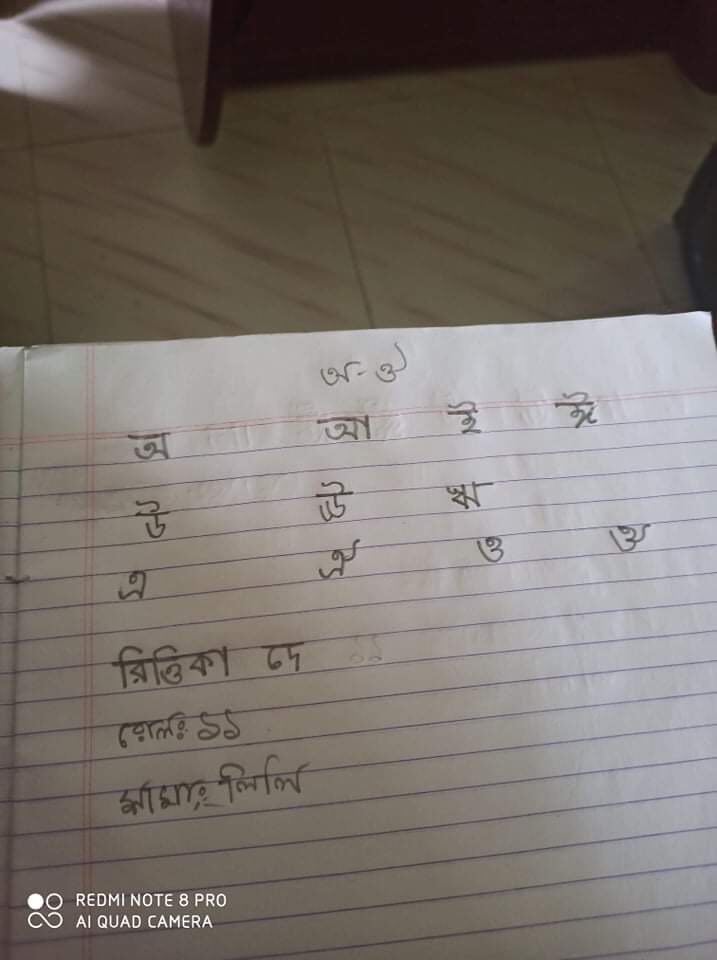 অ-ঔ
অ আ ই ঈ
উ ঊ ঋ
এ ঐ ও ঔ
রিত্তিকা দে ১১
রোলঃ ১১
শাখাঃ লিলি
REDMI NOTE 8 PRO
AI QUAD CAMERA